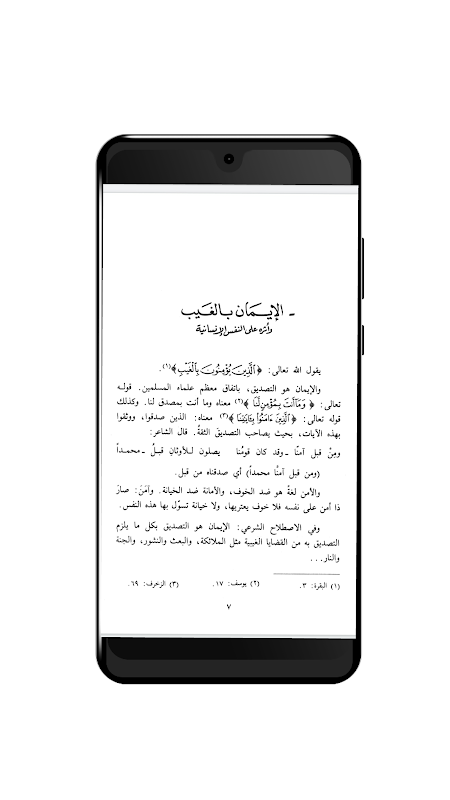 ـ الإيمَان بالغَيب
وأثره على النفس الإنسانية
يقول الله تعالى: ﴿ٱلَّذِينَ يُؤْمِنُونَ بِٱلْغَيْبِ﴾(١).
والإيمان هو التصديق، باتفاق معظم علماء المسلمين. قولـه
تعالى: ﴿وَمَآ أَنتَ بِمُؤْمِنٍ لَّنَا﴾(٢) معناه وما أنت بمصدق لنا. وكذلك
قوله تعالى: ﴿ٱلَّذِينَ ءَامَنُوا۟ بِـَٔايَٰتِنَا﴾(٣) معناه: الذين صدقوا، ووثقوا
بهذه الآيات، بحيث يصاحب التصديقَ الثقةُ. قال الشاعر:
ومِنْ قبل آمنّا ـ وقد كان قومُنا يصلون لـلأوثانِ قبـلُ ـ محمـداً
(ومن قبل آمنَّا محمداً) أي صدقناه من قبل.
والأمن لغةً هو ضد الخوف، والأمانة ضد الخيانة. وآمَنَ: صارَ
ذا أمن على نفسه فلا خوف يعتريها، ولا خيانة تسوّل بها هذه النفس.
وفي الاصطلاح الشرعي: الإيمان هو التصديق بكل ما يلزم
التصديق به من القضايا الغيبية مثل الملائكة، والبعث والنشور، والجنة
والنار...
(١) البقرة: ٣. (٢) يوسف: ١٧. (٣) الزخرف: ٦٩.
٧